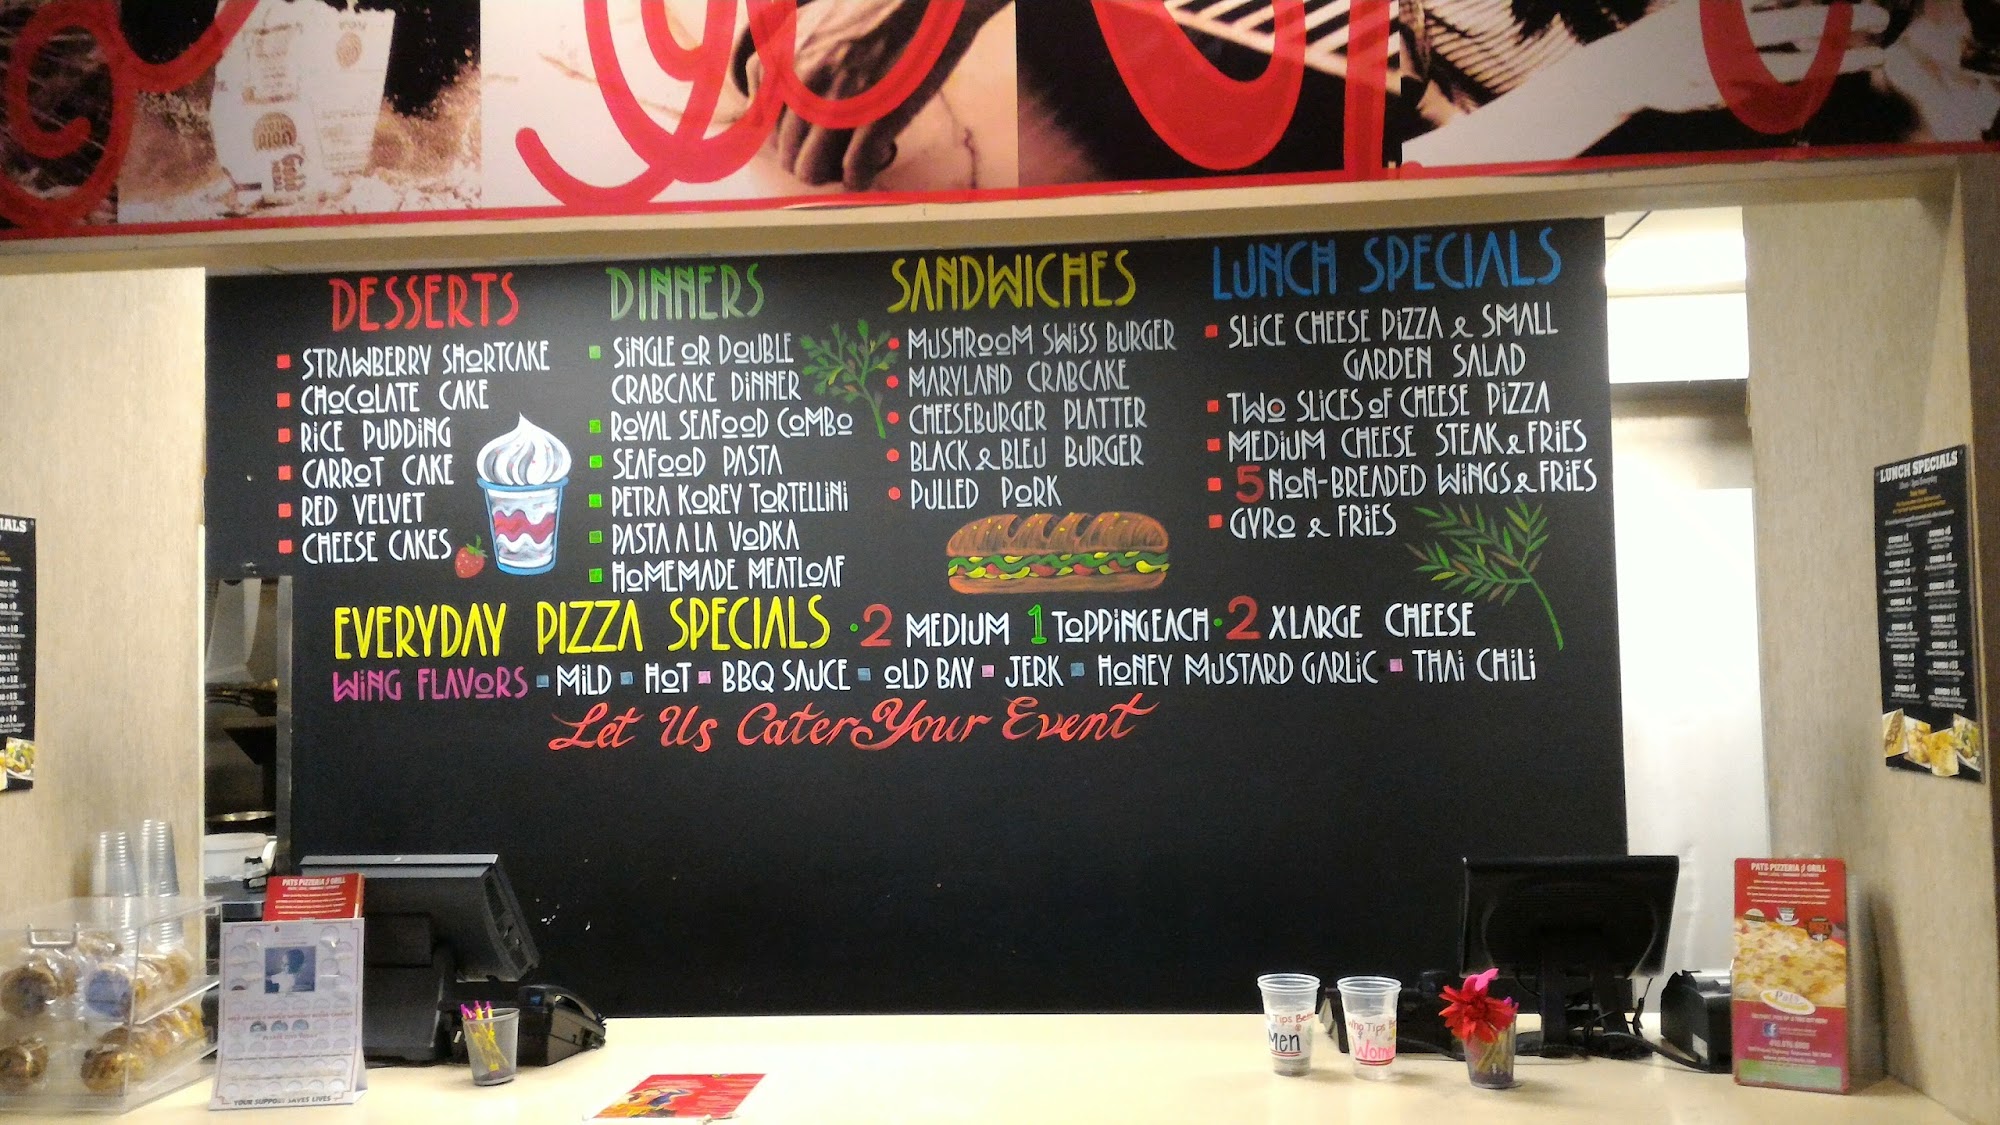 DESSERTS
STRAWBERRY SHORTCAKE
CHOCOLATE CAKE
RICE PUDDING
CARROT CAKE
RED VELVET
CHEESE CAKES
DINNERS
SINGLE OR DOUBLE
CRABCAKE DINNER
ROYAL SEAFOOD COMBO
SEAFOOD PASTA
PETRA KOREY TORTELLINI
PASTA A LA VODKA
HOMEMADE MEATLOAF
SANDWICHES
MUSHROOM SWISS BURGER
MARYLAND CRABCAKE
CHEESEBURGER PLATTER
BLACK & BLEU BURGER
PULLED PORK
LUNCH SPECIALS
SLICE CHEESE PIZZA & SMALL
GARDEN SALAD
TWO SLICES OF CHEESE PIZZA
MEDIUM CHEESE STEAK & FRIES
5 NON-BREADED WINGS & FRIES
GYRO & FRIES
EVERYDAY PIZZA SPECIALS • 2 MEDIUM 1 TOPPING EACH • 2 XLARGE CHEESE
WING FLAVORS MILD HOT BBQ SAUCE OLD BAY JERK HONEY MUSTARD GARLIC THAI CHILI
Let Us Cater Your Event
LUNCH SPECIALS
COMBO #1
COMBO #2
COMBO #7
COMBO #14
PATS PIZZERIA & GRILL
YOUR SUPPORT SAVES LIVES
Tips
Men
Who Tips
PATS PIZZERIA & GRILL
Pats